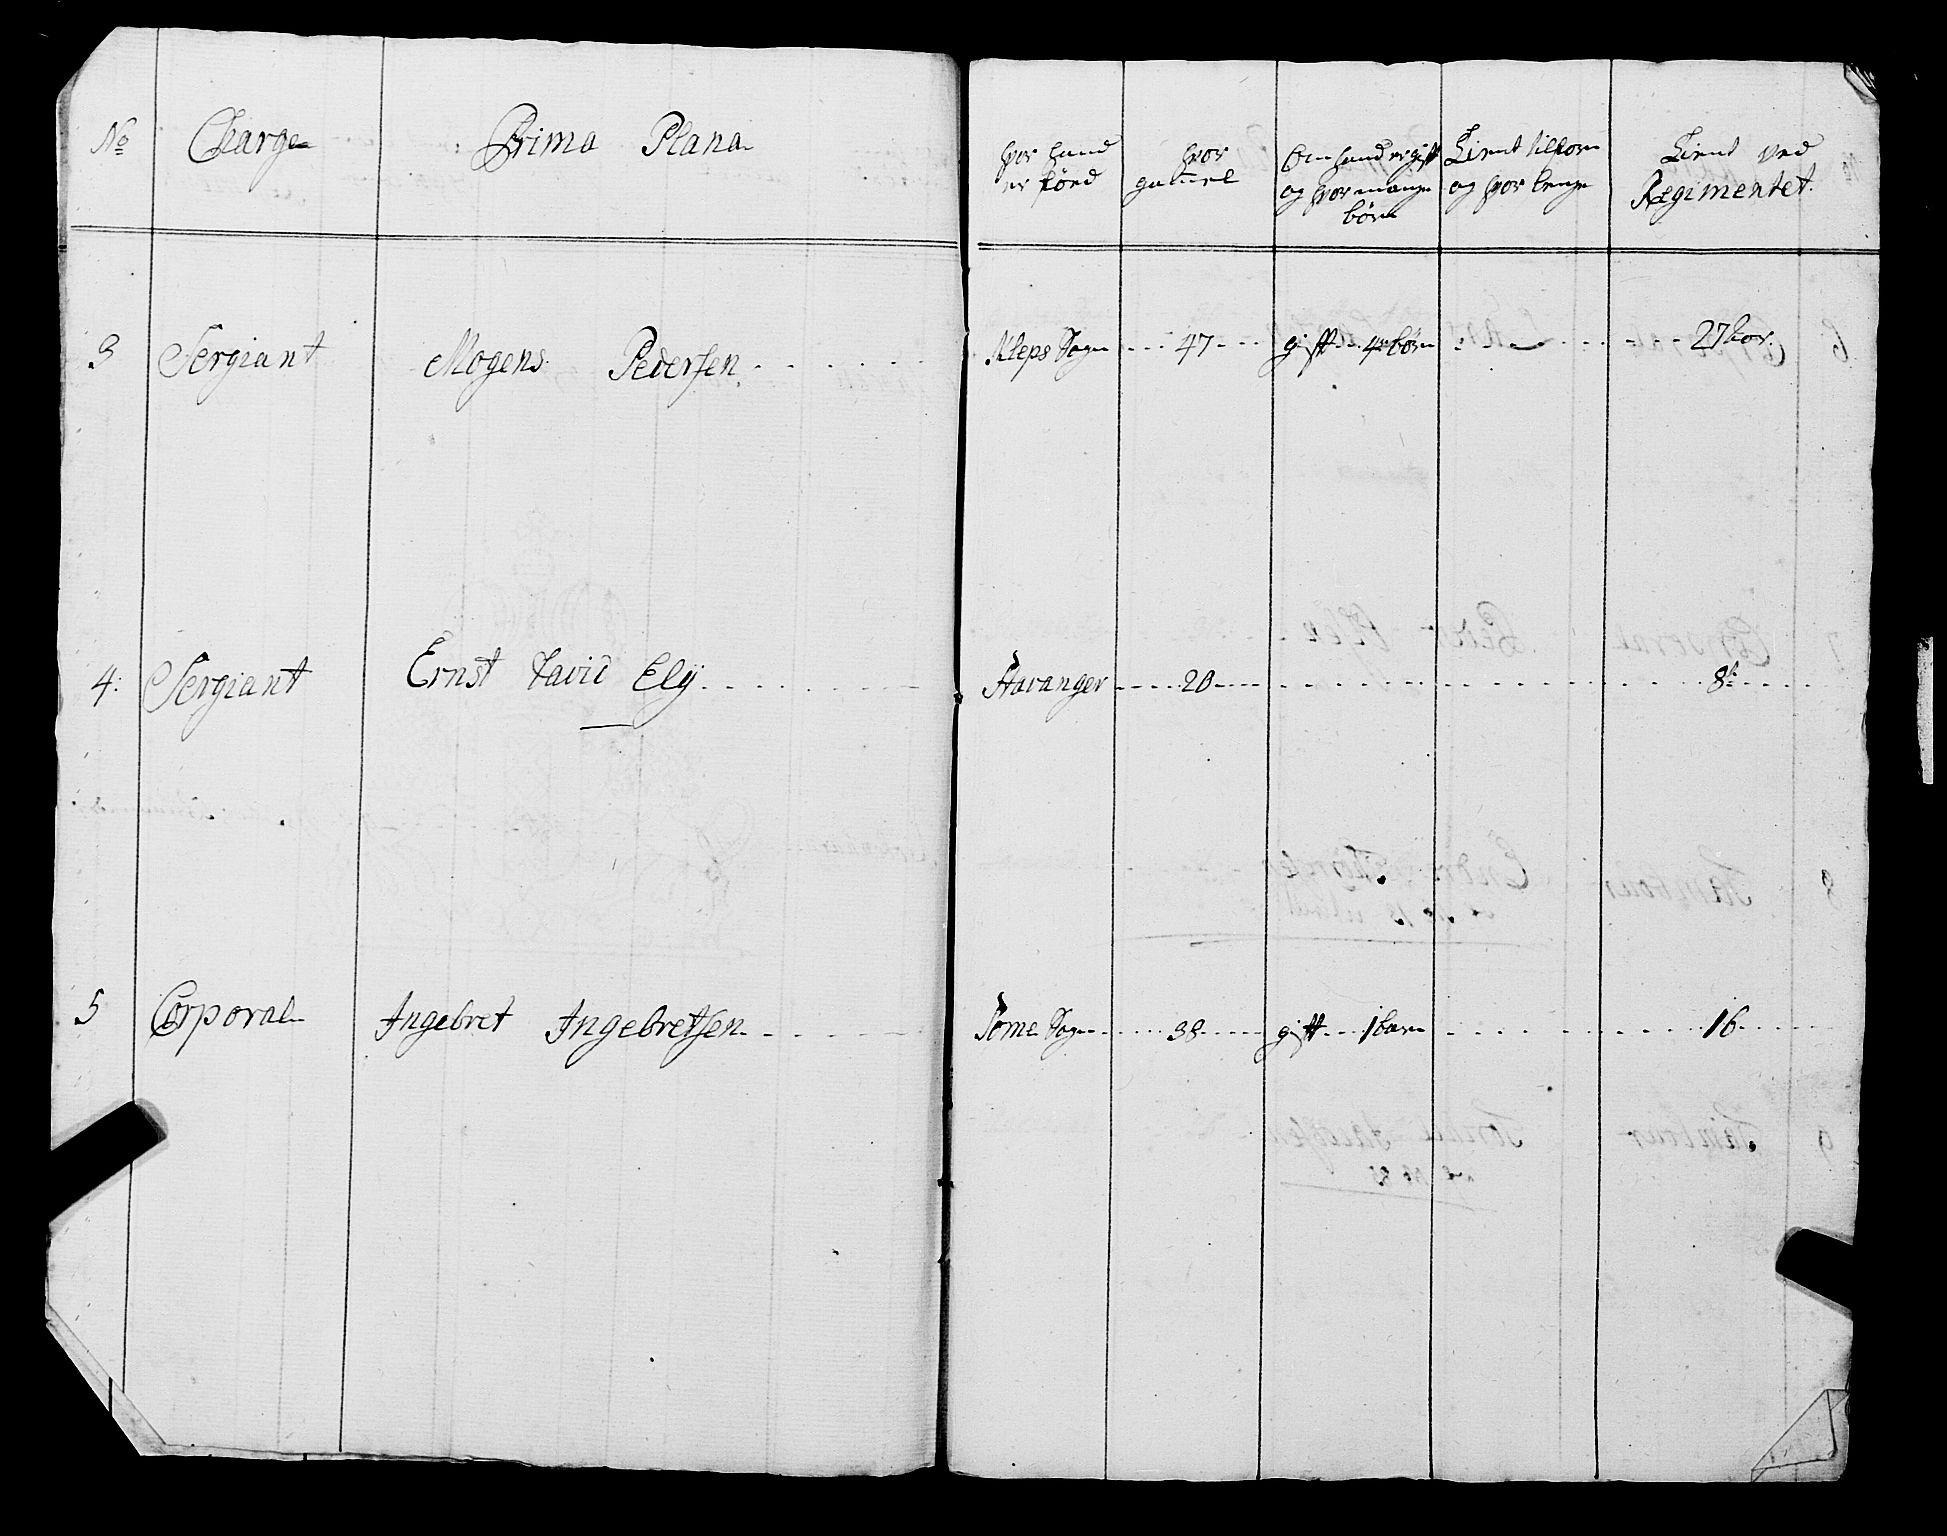 No Charge Prima Plana hvor hand er föed hvor gammel Om hand er gift og hvor mange börn Tient tilforn og hvor lenge Tient ved Regimentet.
3 Sergiant Mogens Pedersen Kleps Sogn 47 gift 4 börn 27
4: Sergiant Ernst David Ely Stavanger 20 8
5 Corporal Ingebret Ingebretsen Sogn 38 gift 1 barn 16